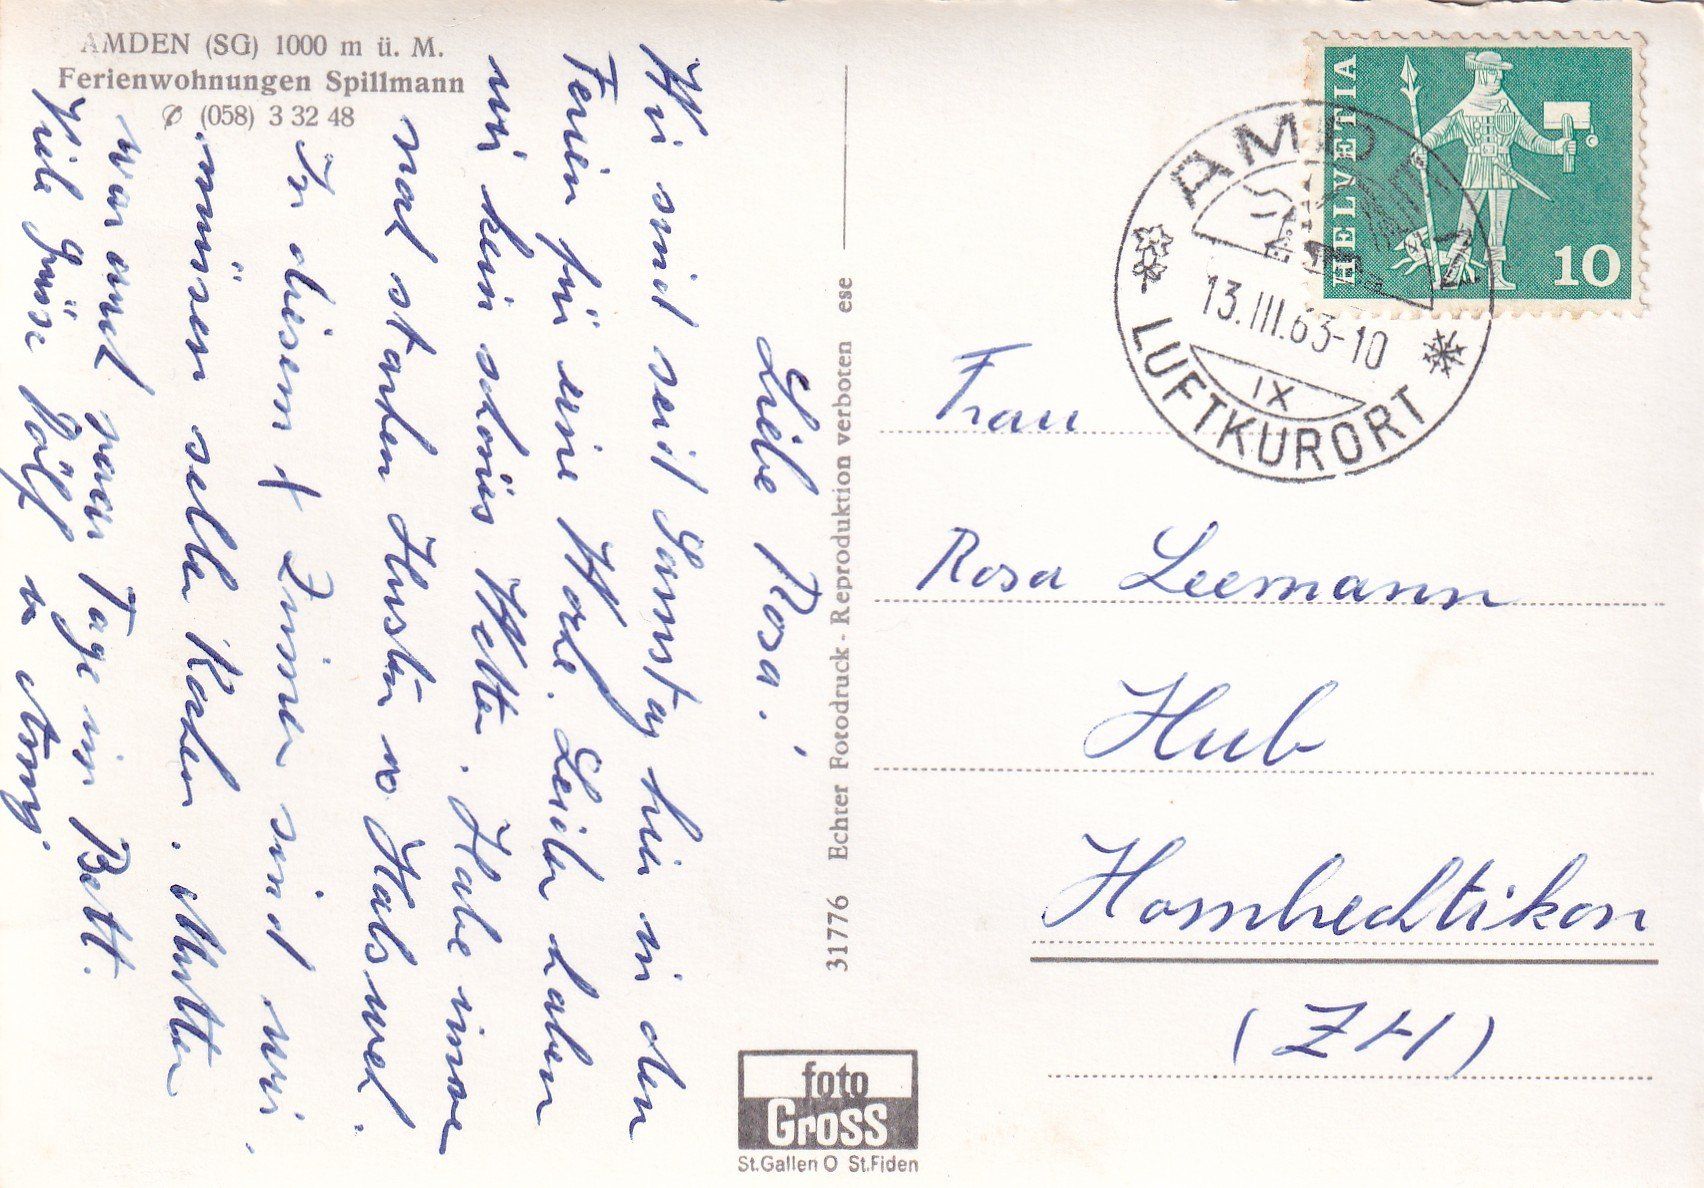 AMDEN (SG) 1000 m ü. M.
Ferienwohnungen Spillmann
✆ (058) 3 32 48
Liebe Rosa!
Wir sind seit Samstag hier in den
Ferien für eine Woche. Leider haben
wir kein schönes Wetter. Habe immer
noch starken Husten u Halsweh.
In diesem + Zimmer sind wir,
müssen selber kochen. Mutter
war auch paar Tage im Bett.
Viele Grüsse Rölf u
31776 Echter Fotodruck - Reproduktion verboten ese
foto
Gross
St.Gallen O St.Fiden
HELVETIA
10
AMDEN
13.III.63-10
IX
LUFTKURORT
Frau
Rosa Leemann
Hub
Hombrechtikon
(ZH)